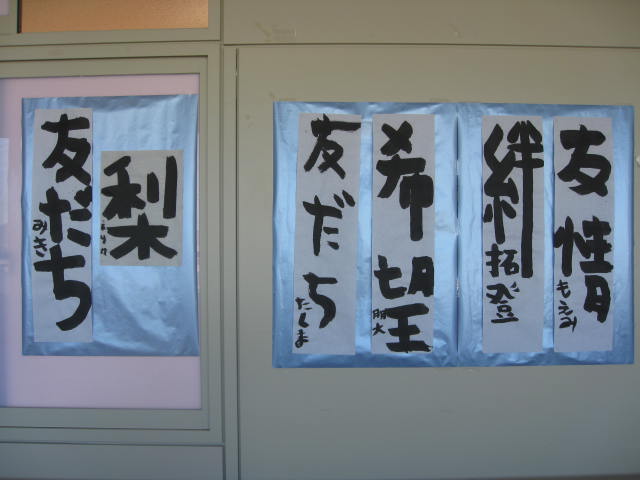 友情
もえみ
絆
拓登
希望
朋大
友だち
たくま
梨
友だち
みき